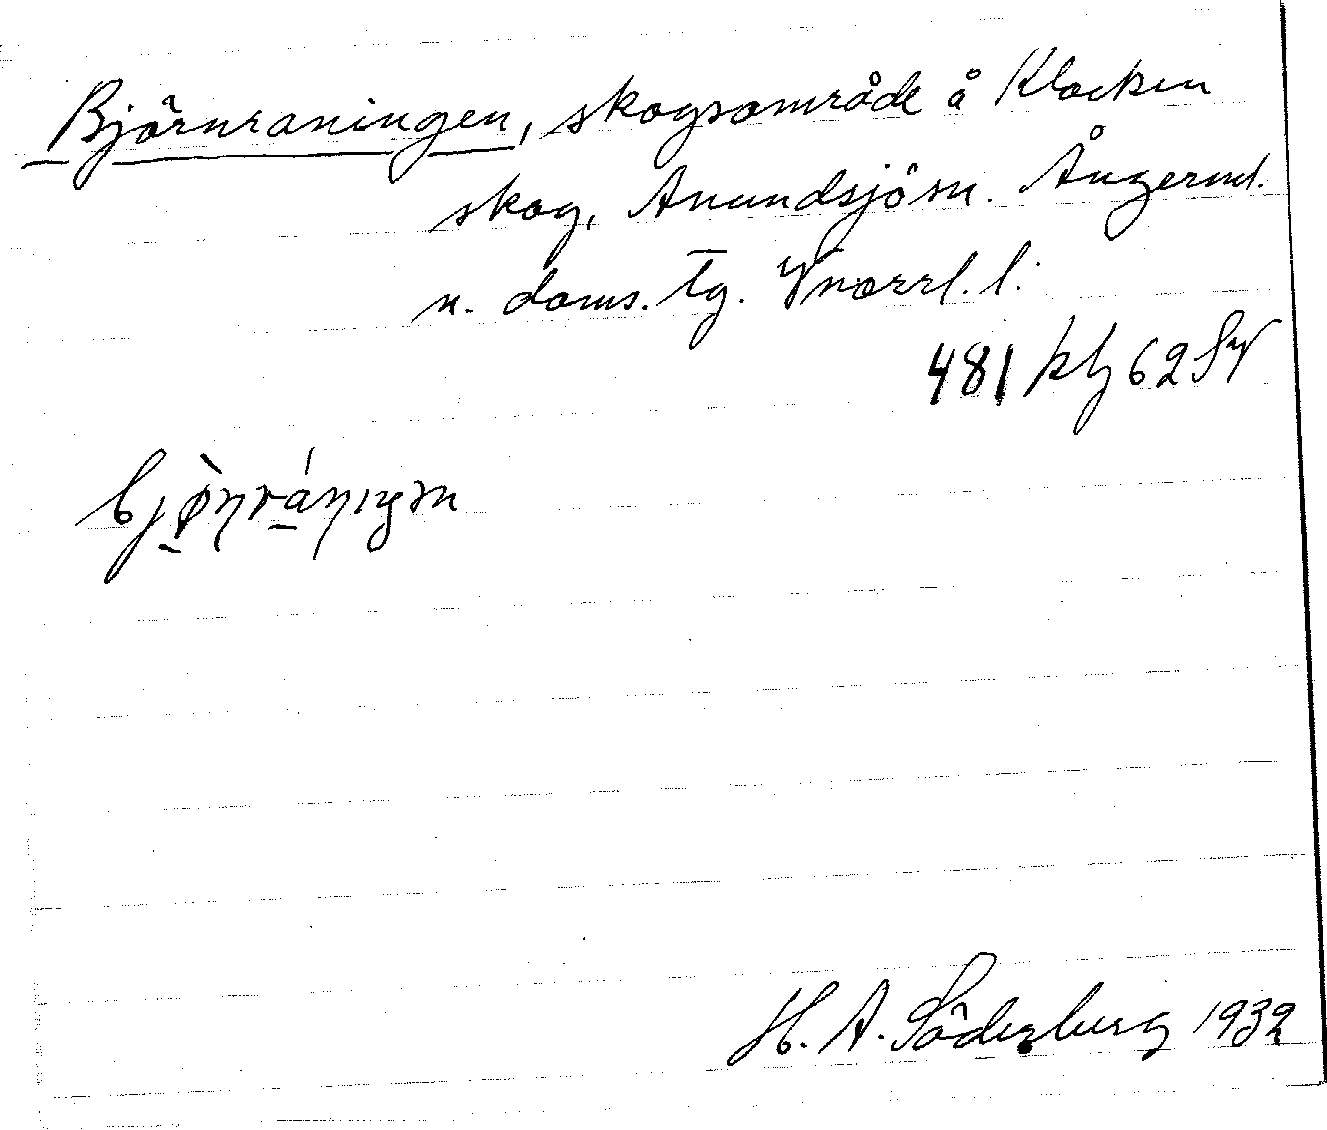 Björnraningen, skogsområde å Klocken
skog, Anundsjö sn. Ångerml.
n. doms. tg. Vnorrl. l.
481 ktj 62 SV
H. A. Söderberg 1932